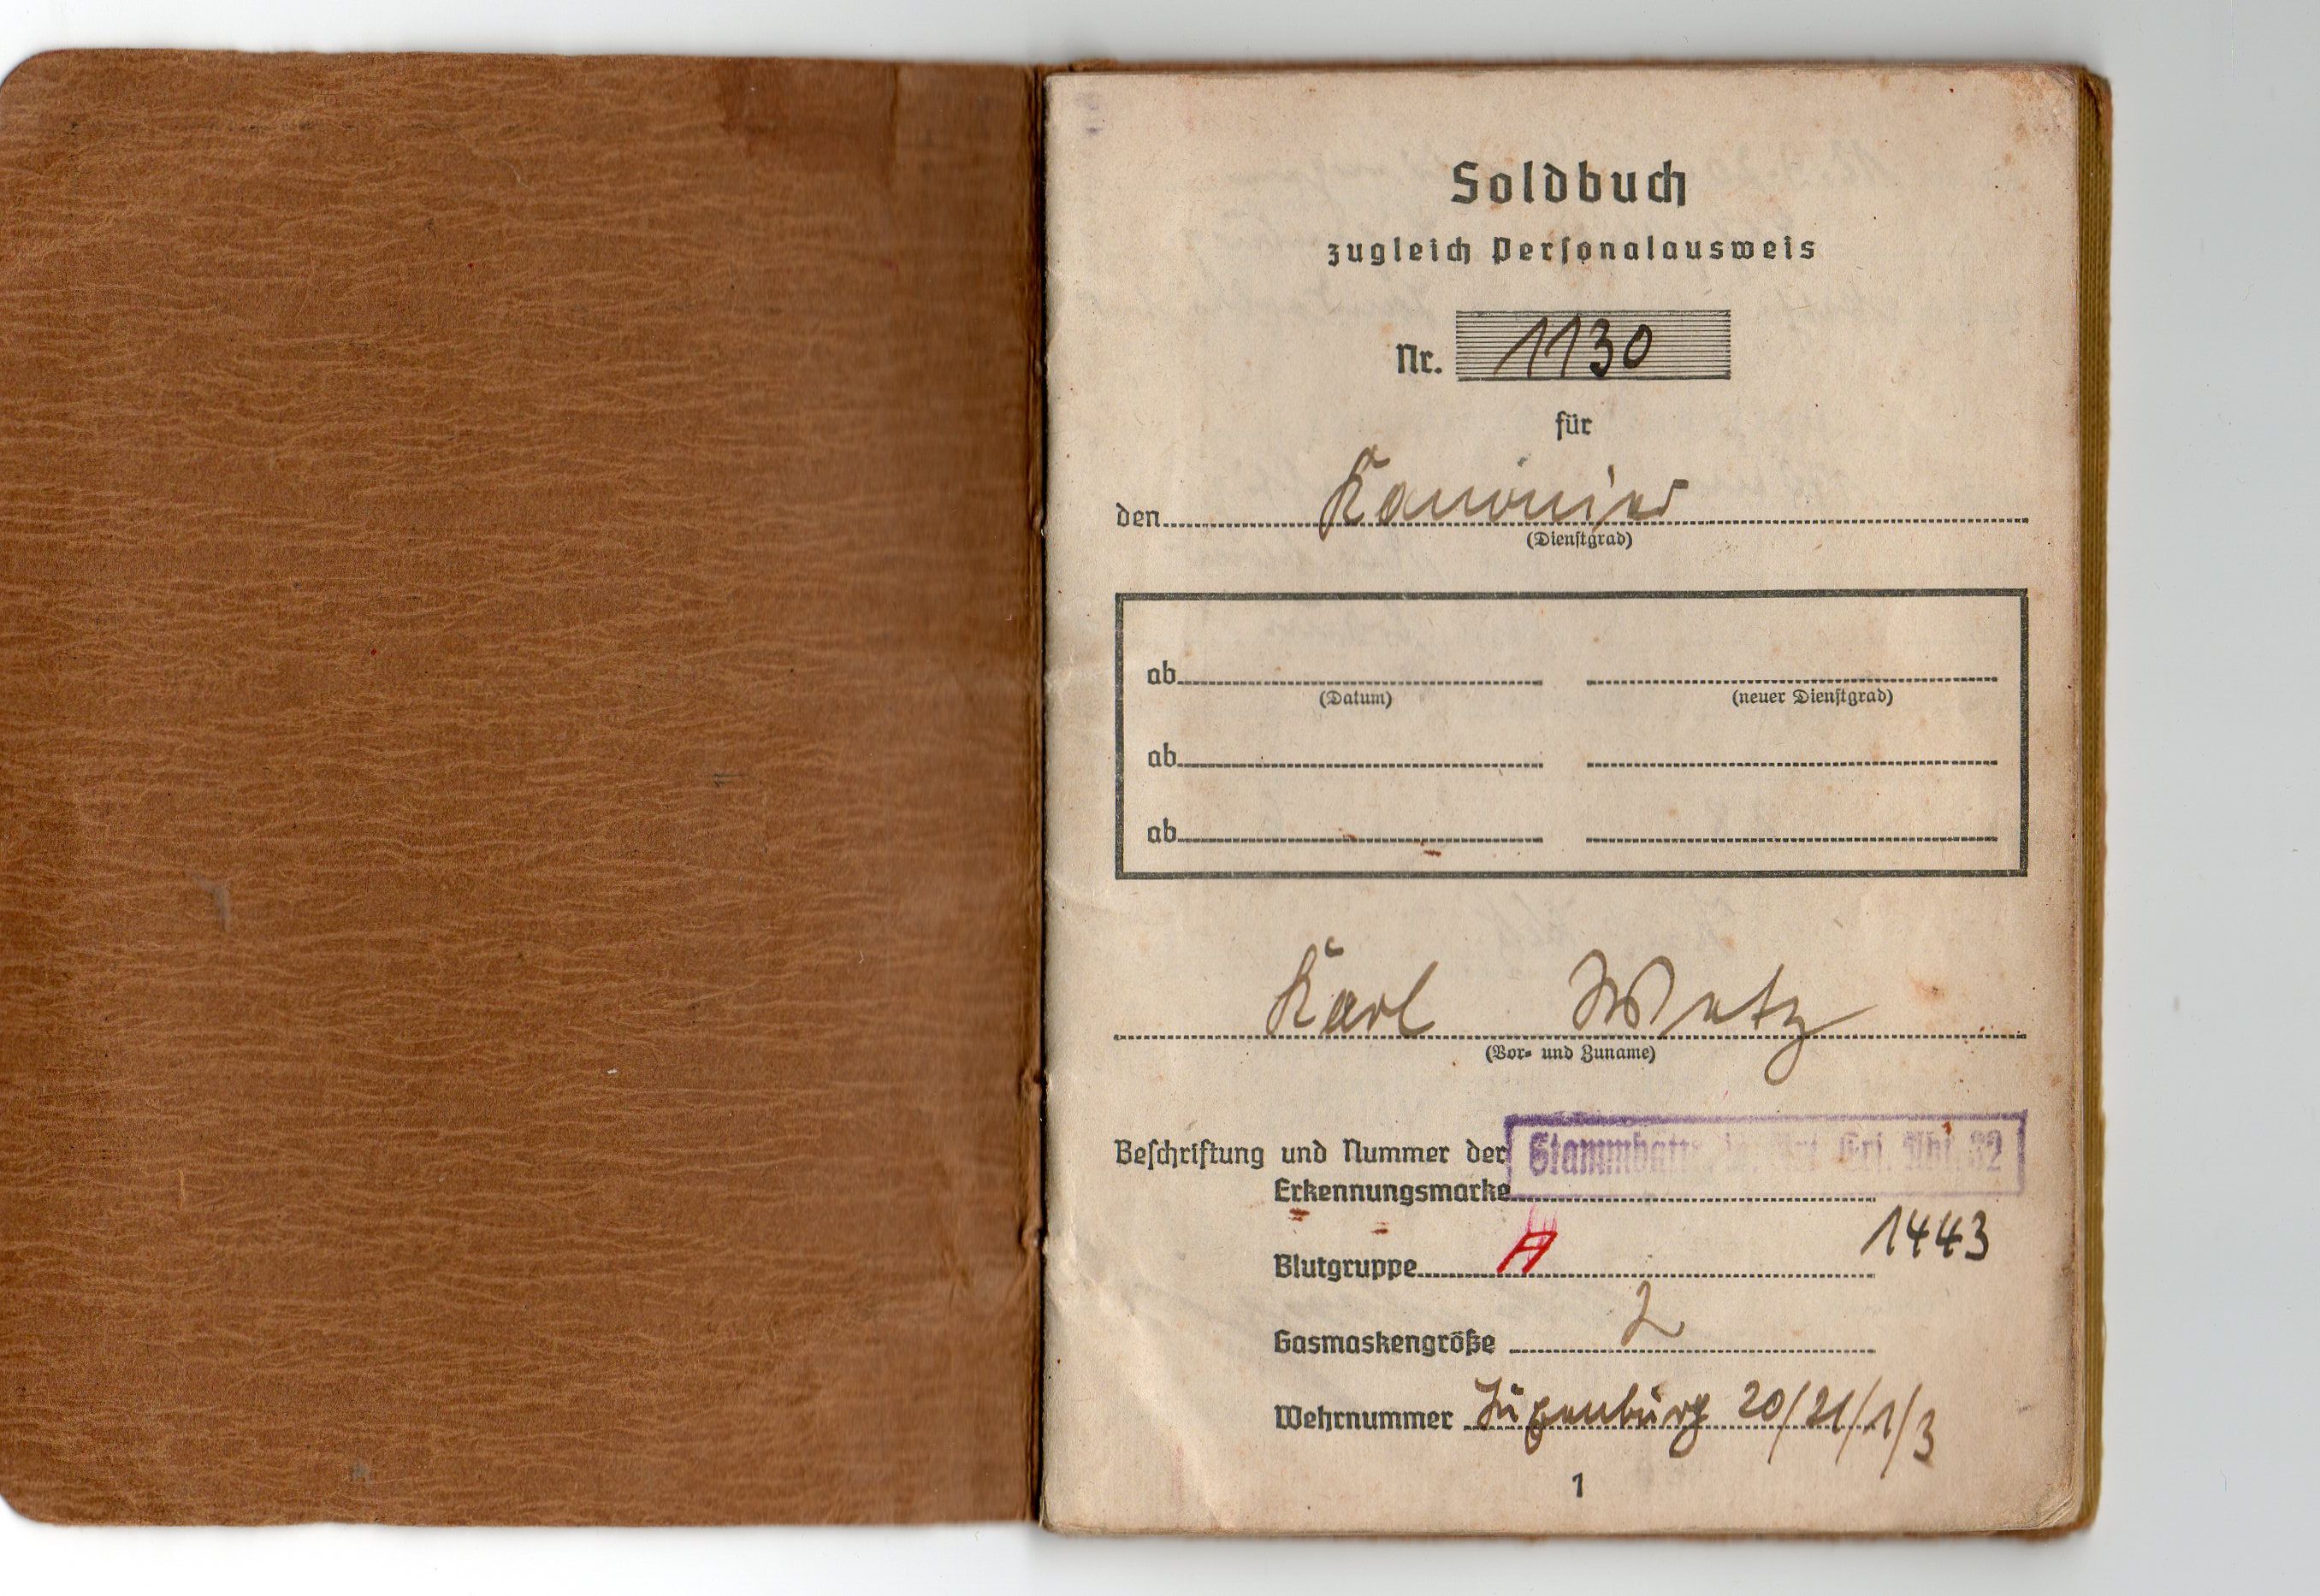 Soldbuch
zugleich Personalausweis
Nr. 1130
für
den Kanonier
(Dienstgrad)
ab
(Datum) (neuer Dienstgrad)
ab
ab
Karl Wetz
(Vor- und Zuname)
Beschriftung und Nummer der
Erkennungsmarke
1443
Blutgruppe A
Gasmaskengröße 2
Wehrnummer 20/21/1/3
1